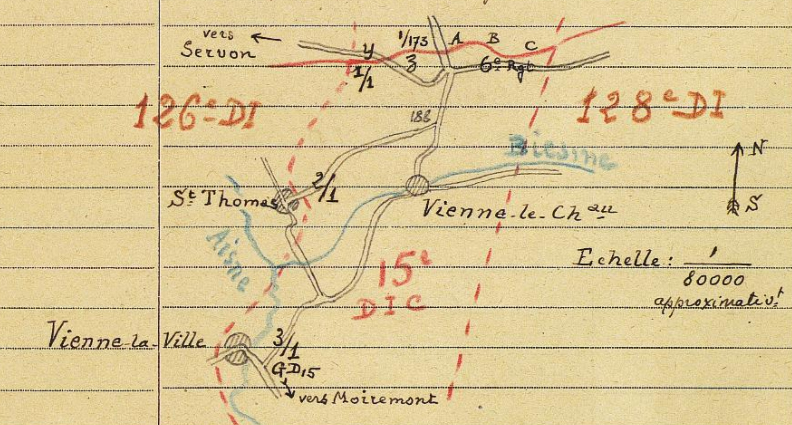 vers
Servon
y
1/1
1/173
3
A
B
C
6e Rgt
126e DI
128e DI
188
Biesme
N
S
St Thomas
2/1
Vienne-le-Chau
Aisne
15e
DIC
Echelle: 1/80000
approximativt
Vienne-la-Ville
3/1
GD15
vers Moiremont